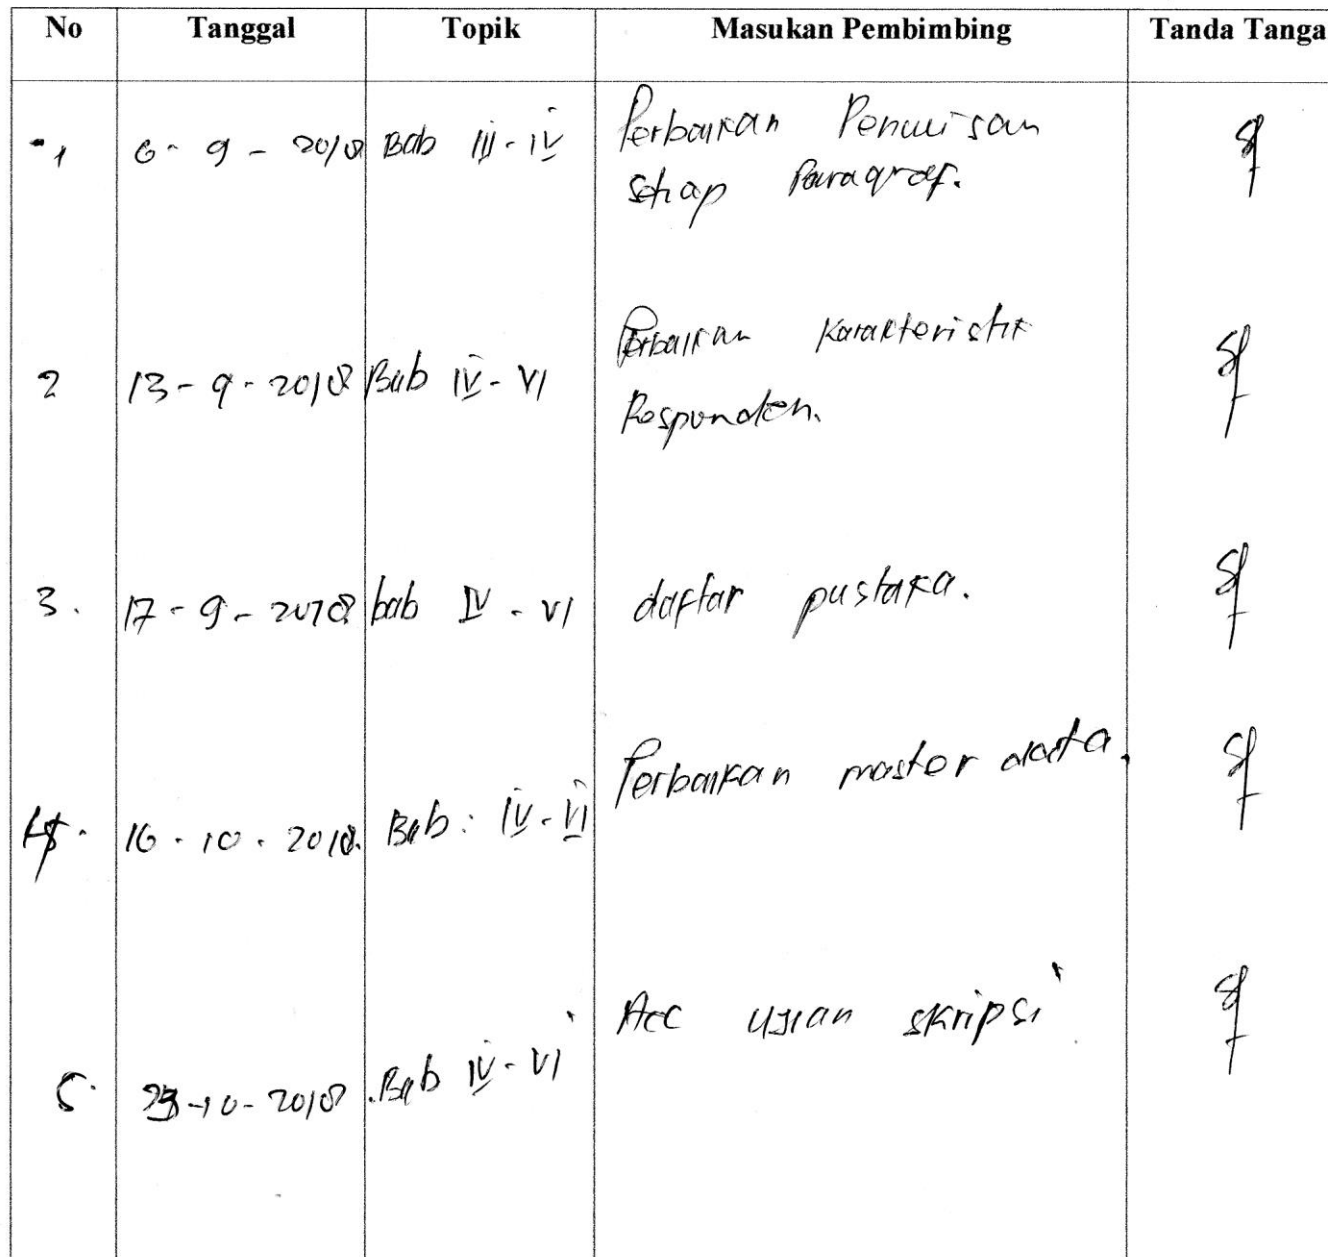 No Tanggal Topik Masukan Pembimbing Tanda Tanga
1 6 - 9 - 2018 Bab III - IV Perbaikan Penulisan
setiap Paragraf.
2 13 - 9 - 2018 Bab IV - VI Perbaikan Karakteristik
Responden.
3. 17 - 9 - 2018 bab IV - VI daftar pustaka.
4. 16 - 10 - 2018. Bab : IV - VI Perbaikan master data.
5. 23 - 10 - 2018 Bab IV - VI Acc ujian skripsi